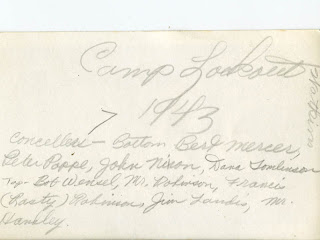 Camp Lookout
1943
Concellers - Bottom Bert Mercer,
Peter Pappe, John Nixon, Dana Tomlinson
Top - Bob Wensel, Mr. Robinson, Francis
(Lasty) Robinson, Jim Landis, Mr.
Hansley.